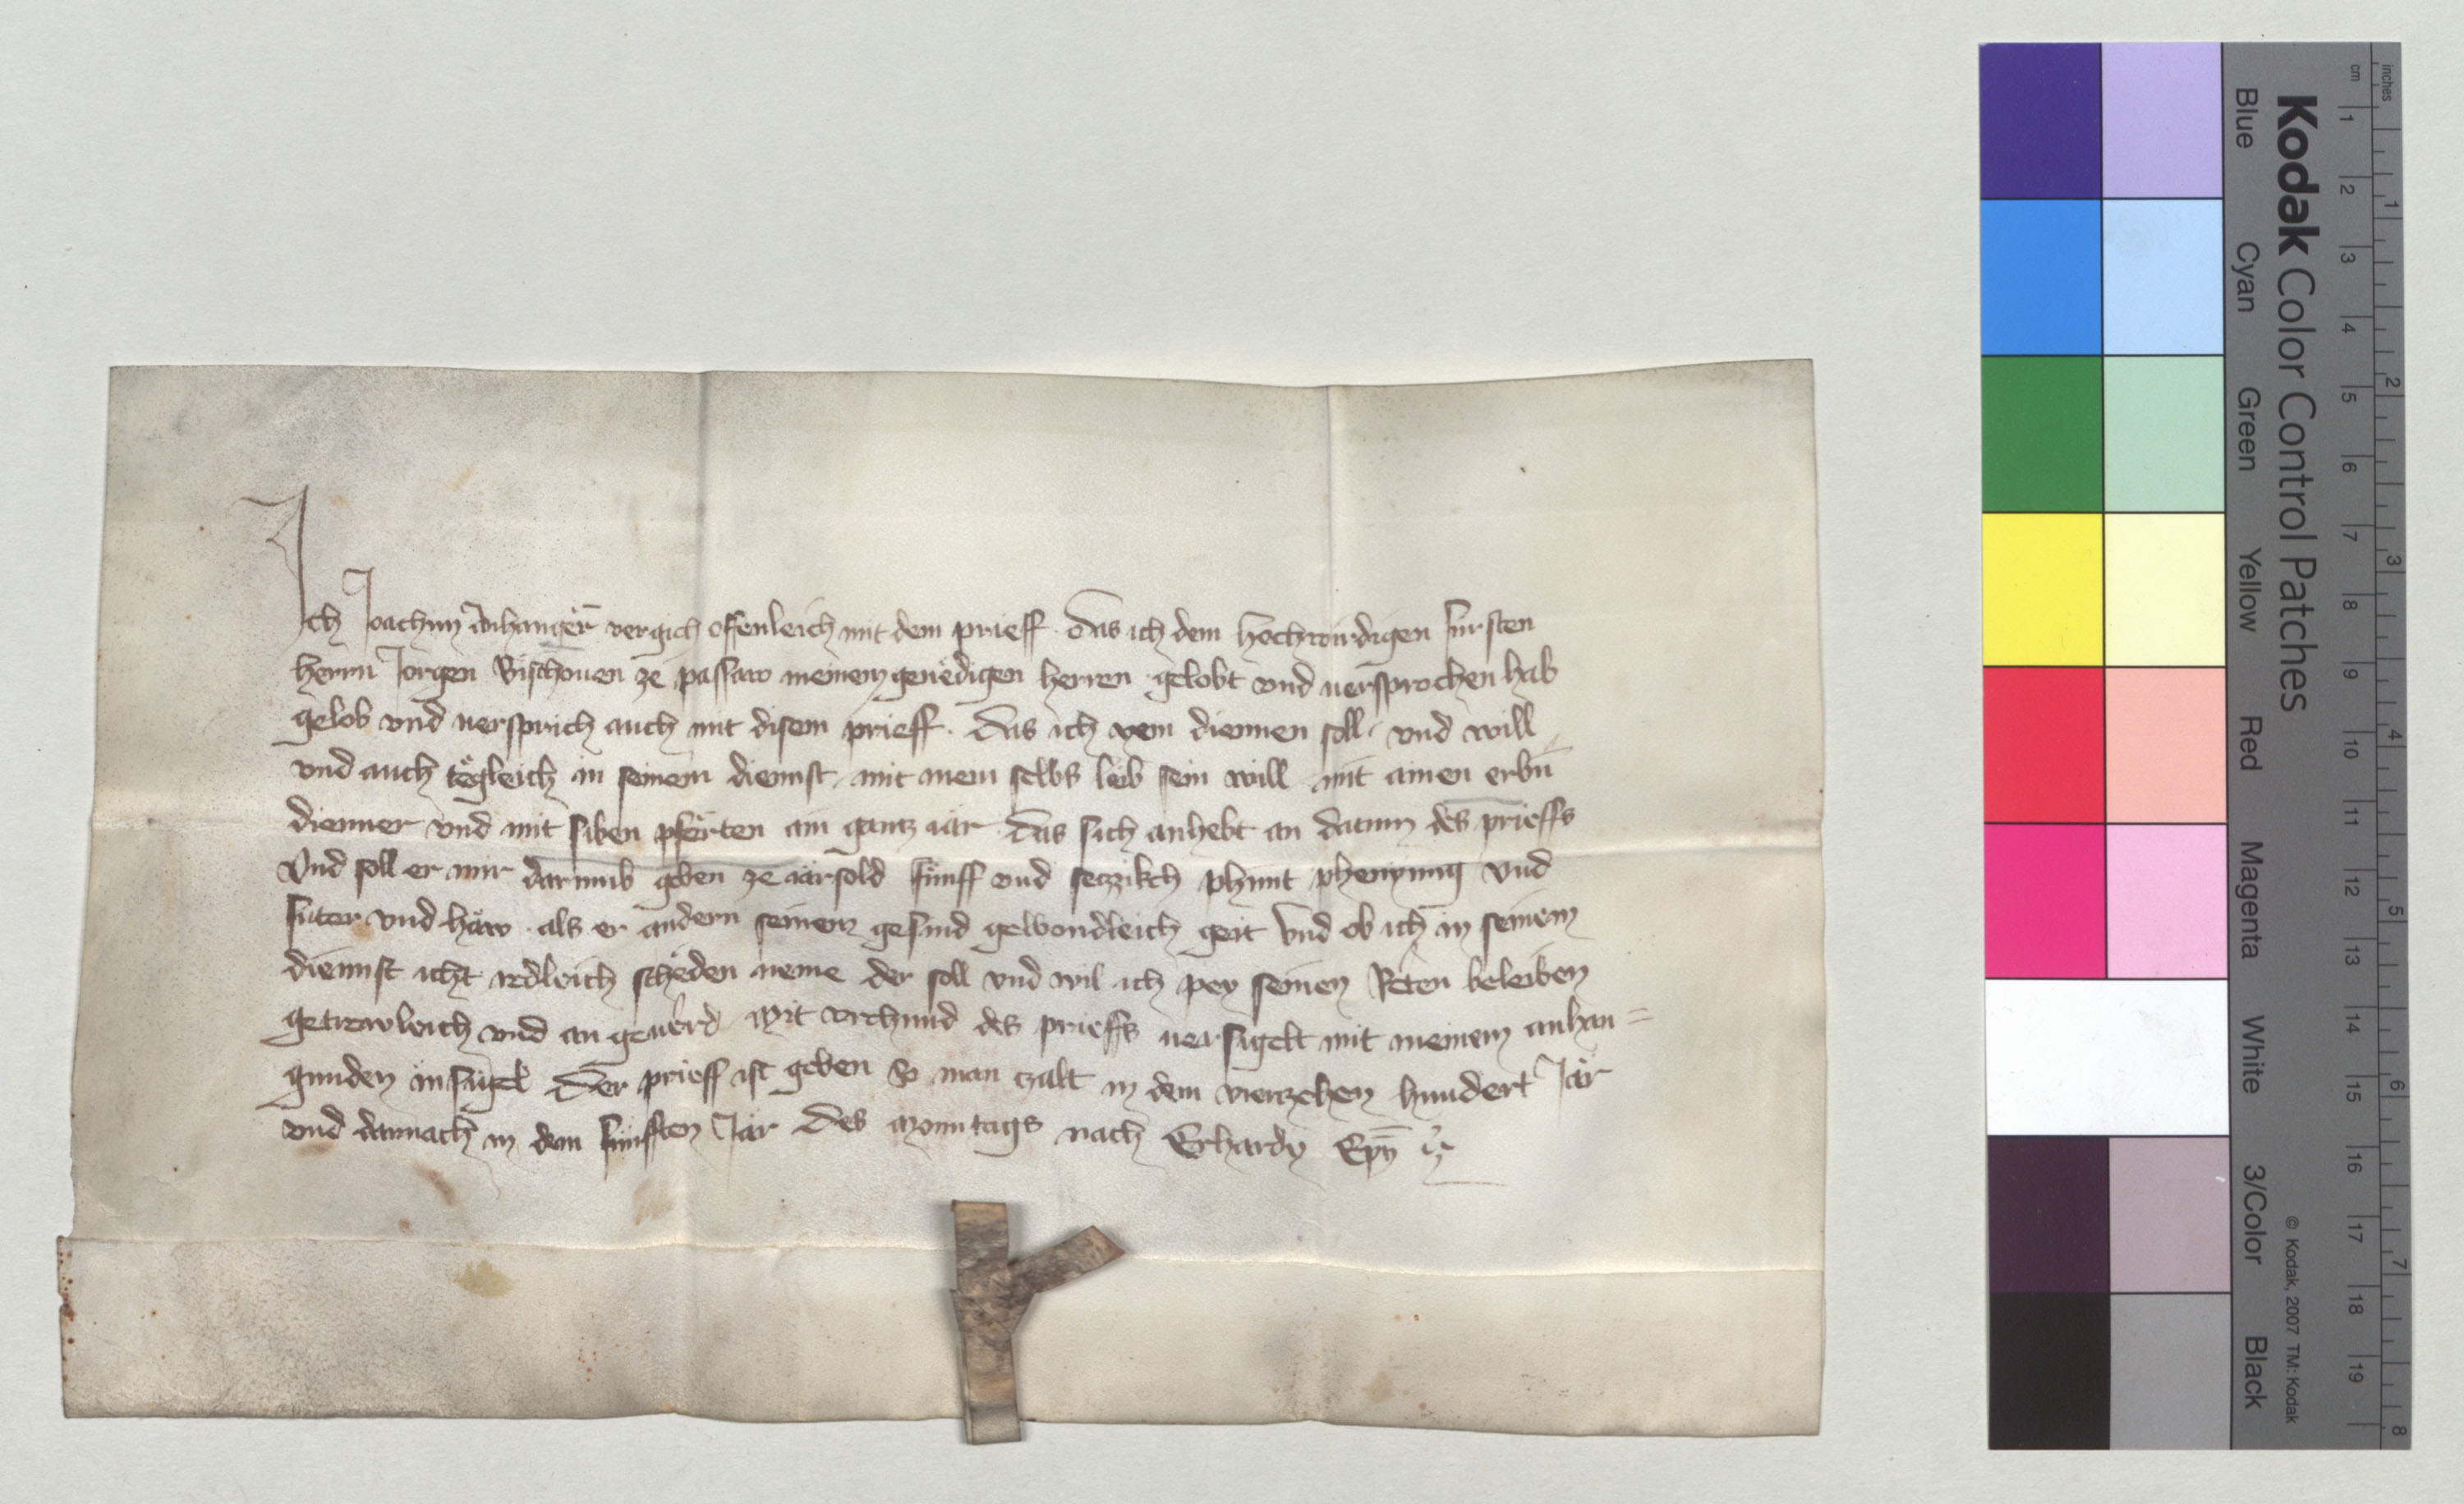 Ich Joachim Anhanger vergich offenleich mit dem prieff. Das ich dem hochwirdigen fürsten
herrn Jorgen Bischouen ze passaw meinem genedigen herren gelobt vnd uersprochen hab
gelob vnd uersprich auch mit disem prieff. Das ich dienen soll vnd will
vnd auch tegleich in seinem dienst mit meins selbs leib sein will mit ainen erbn
dienner vnd mit siben pferten ain gantz iar Das sich anhebt an datum des prieffs
Vnd soll er mir darumb geben ze iarsold fünff vnd seczikch phunt phenning vnd
futer vnd häw als er andern seinem gesind gewondleich geit Vnd ob ich in seinem
dienst icht redleich scheden neme der soll vnd wil ich pey seinen Reten beleiben
getrewleich vnd an geuerd Mit vrchund des prieffs uersigelt mit meinem anhan=
gunden insigel Der prieff ist geben So man czalt in dem vierzehen hundert Jar
vnd darnach in dem fünfften Jar Des Monntags nach Erhardy Epi
Kodak Color Control Patches
Blue Cyan Green Yellow Red Magenta White 3/Color Black
© Kodak, 2007 TM: Kodak
cm 1 2 3 4 5 6 7 8 9 10 11 12 13 14 15 16 17 18 19
inches 1 2 3 4 5 6 7 8